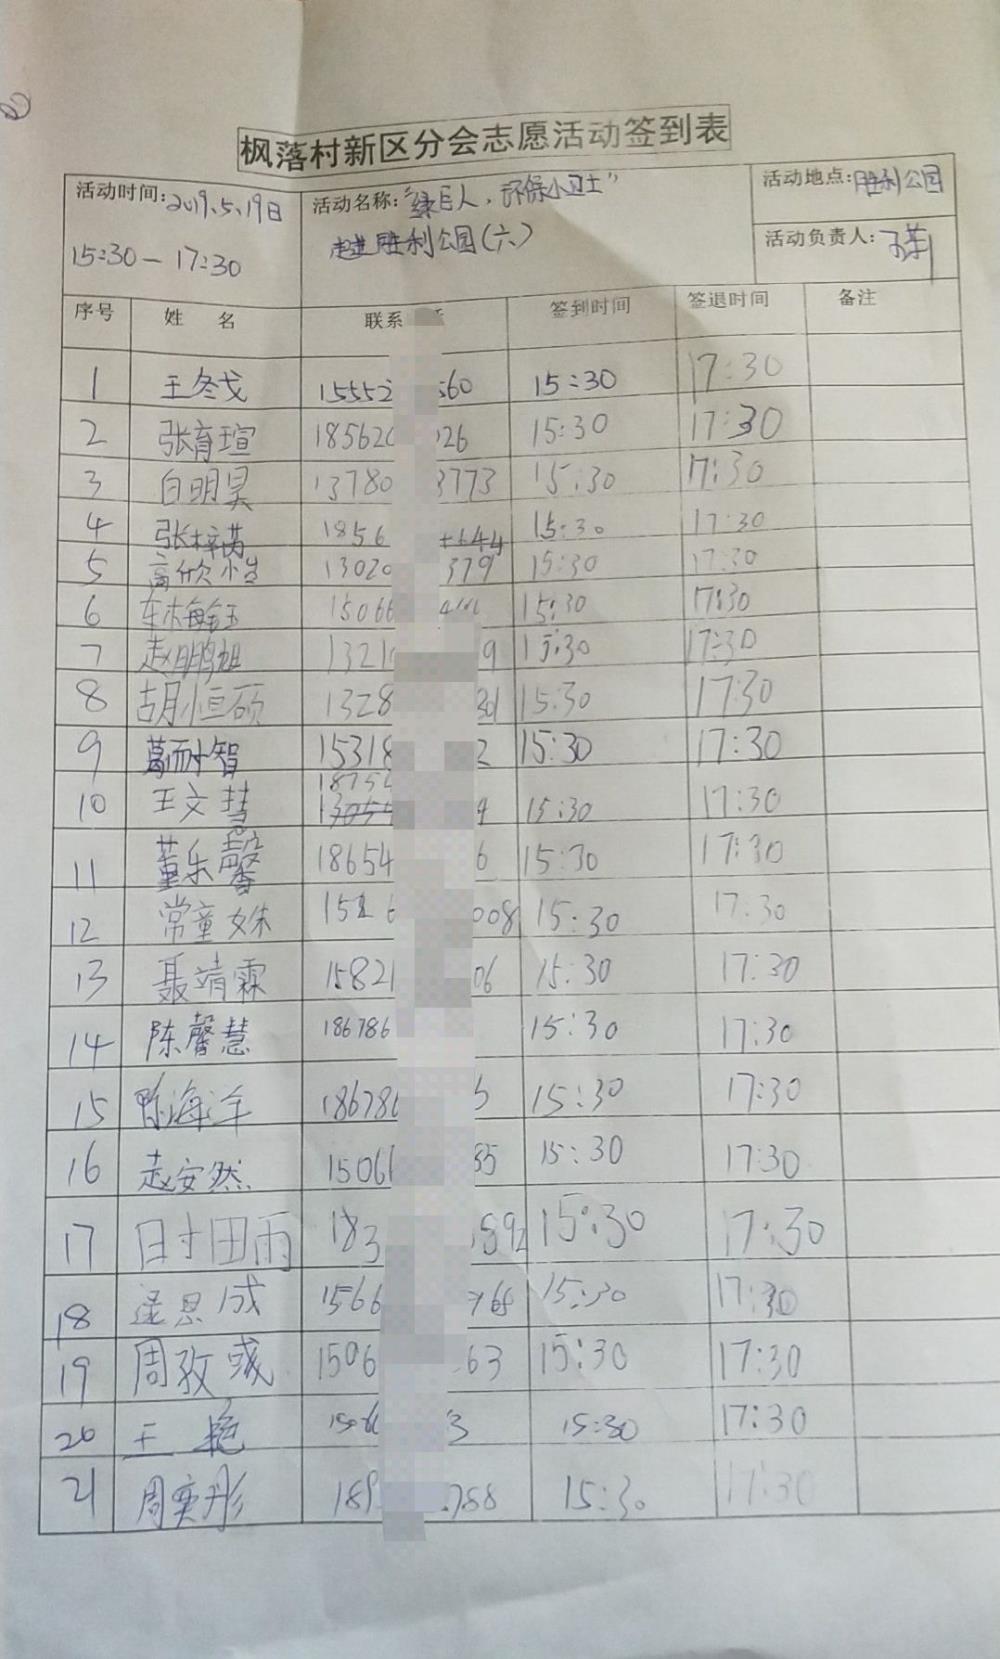 枫落村新区分会志愿活动签到表
活动时间:2019.5.19日
15:30—17:30
活动名称:"绿巨人,环保小卫士"
走进胜利公园(六)
活动地点:胜利公园
活动负责人:
序号 姓 名 联系 签到时间 签退时间 备注
1 王冬戈 15552 560 15:30 17:30
2 张育瑄 185620 026 15:30 17:30
3 白明昊 13780 3773 15:30 17:30
4 张梓芮 1856 644 15:30 17:30
5 高欣 13020 379 15:30 17:30
6 15066 15:30 17:30
7 赵鹏旭 1321 9 15:30 17:30
8 胡恒硕 1328 15:30 17:30
9 葛耐智 15318 2 15:30 17:30
10 王文慧 1875 15:30 17:30
11 董乐馨 18654 6 15:30 17:30
12 常童姝 15 008 15:30 17:30
13 聂靖霖 15821 06 15:30 17:30
14 陈馨慧 186786 15:30 17:30
15 陈海洋 186786 15:30 17:30
16 赵安然 15066 85 15:30 17:30
17 时田雨 183 892 15:30 17:30
18 逯恩成 1566 15:30 17:30
19 周孜彧 1506 63 15:30 17:30
20 王艳 1506 3 15:30 17:30
21 周奕彤 189 788 15:30 17:30